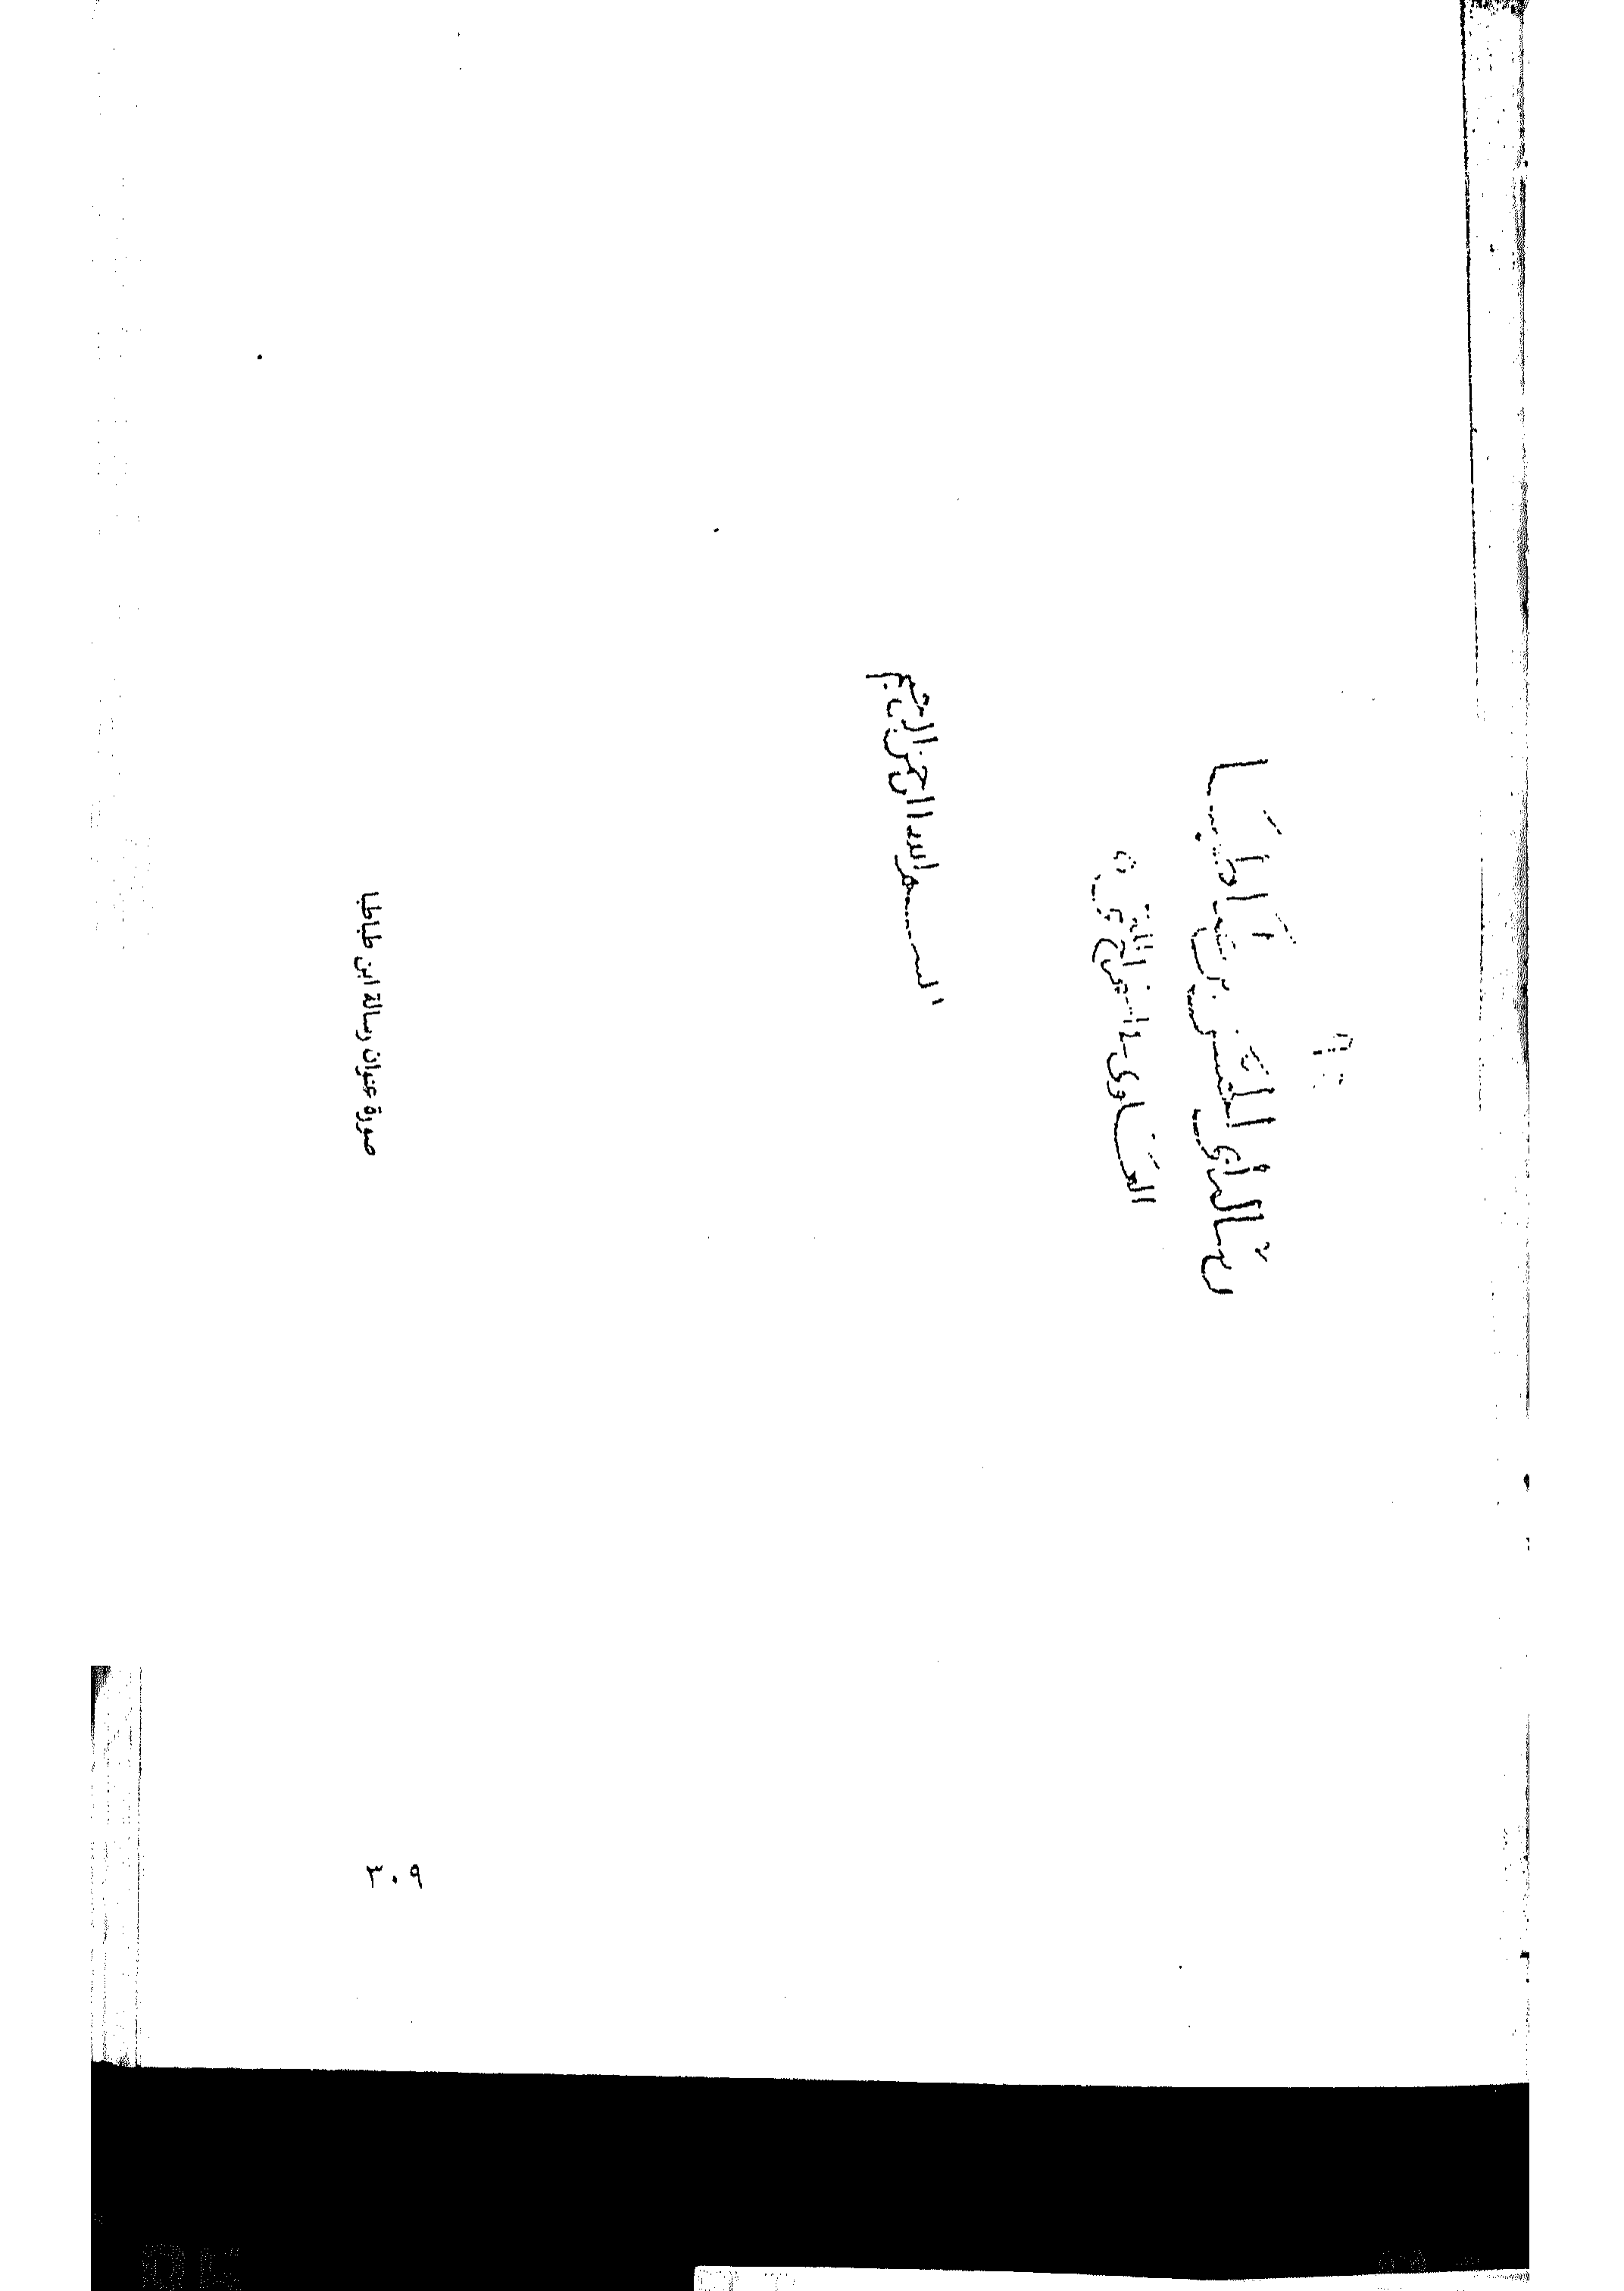 رسالة أبي الحسن بن طباطبا
العلوي في استخراج المعمى
بسم الله الرحمن الرحيم
صورة عنوان رسالة ابن طباطبا
٣٠٩